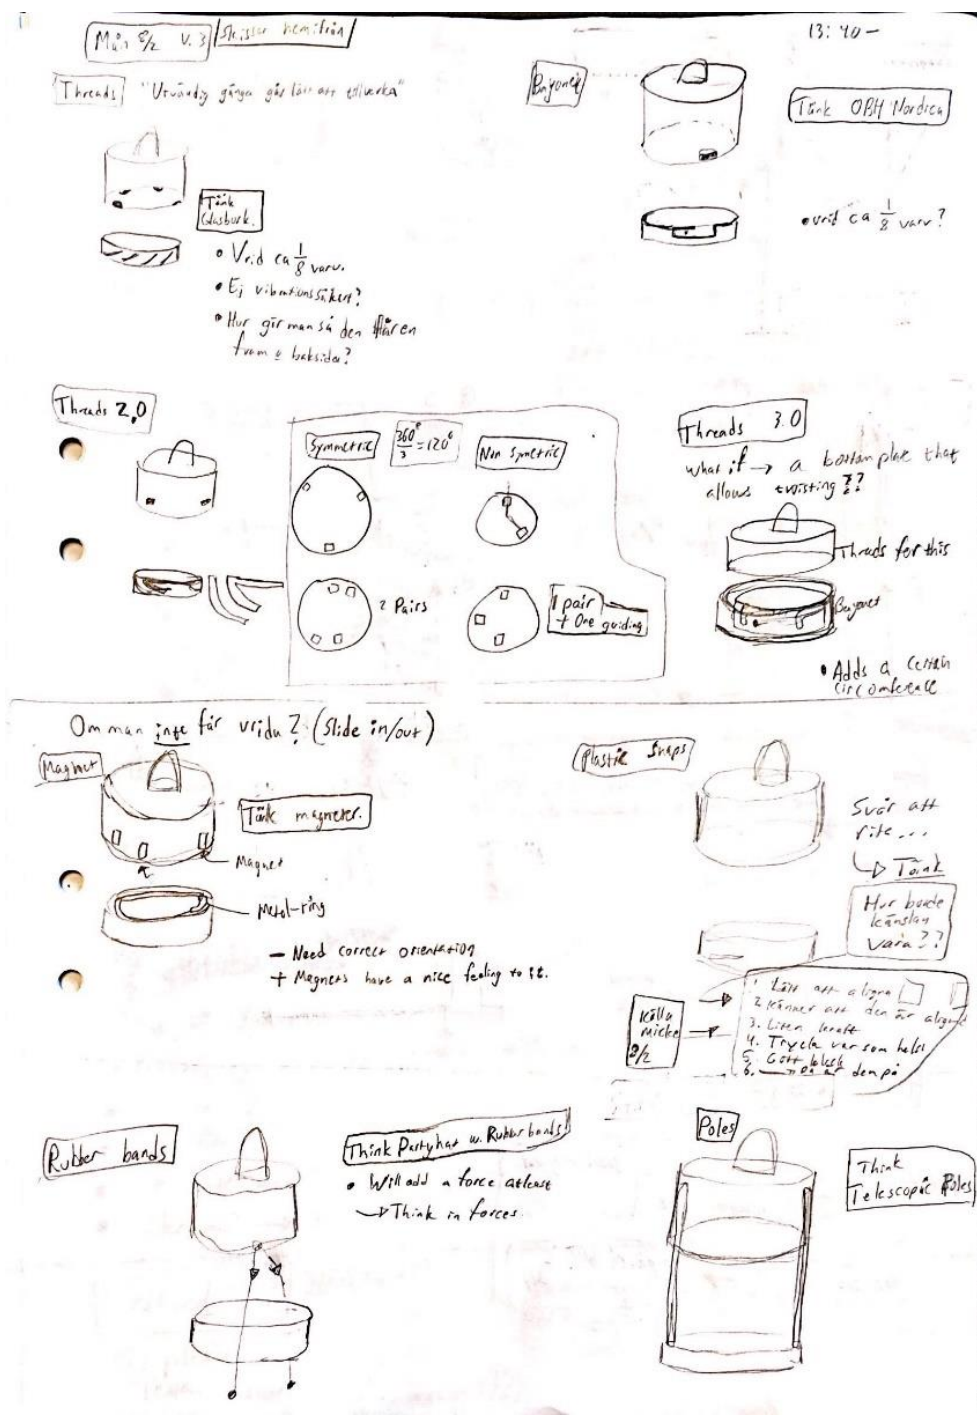 Mån 8/2 V. 3
Skisser hemifrån
13:40-
Threads
"Utvändig gänga går lätt att tillverka"
Tänk
Glasburk.
• Vrid ca 1/8 varv.
• Ej vibrationssäkert?
• Hur gör man så den får en
fram & baksida?
Bayonet
Tänk OBH Nordica
• vrid ca 1/8 varv?
Threads 2.0
Symmetric
360°/3 = 120°
Non Symetric
2 Pairs
1 pair
+ One guiding
Threads 3.0
what if → a bottom plate that
allows twisting??
Threads for this
Bayonet
• Adds a certain
circomference
Om man inte får vrida? (Slide in/out)
Magnet
Tänk magneter.
Magnet
Metal-ring
- Need correct orientation
+ Magnets have a nice feeling to it.
Plastic Snaps
Svår att
rita...
→ Tänk
Hur borde
känslan
vara??
Källa
micke
8/2
1. Lätt att aligna
2. Känner att den är alignad
3. Liten kraft
4. Trycka var som helst
5. Gött klick
6. den på
Rubber bands
Think Partyhat w. Rubber bands!
• Will add a force atleast
→ Think in forces.
Poles
Think
Telescopic Poles